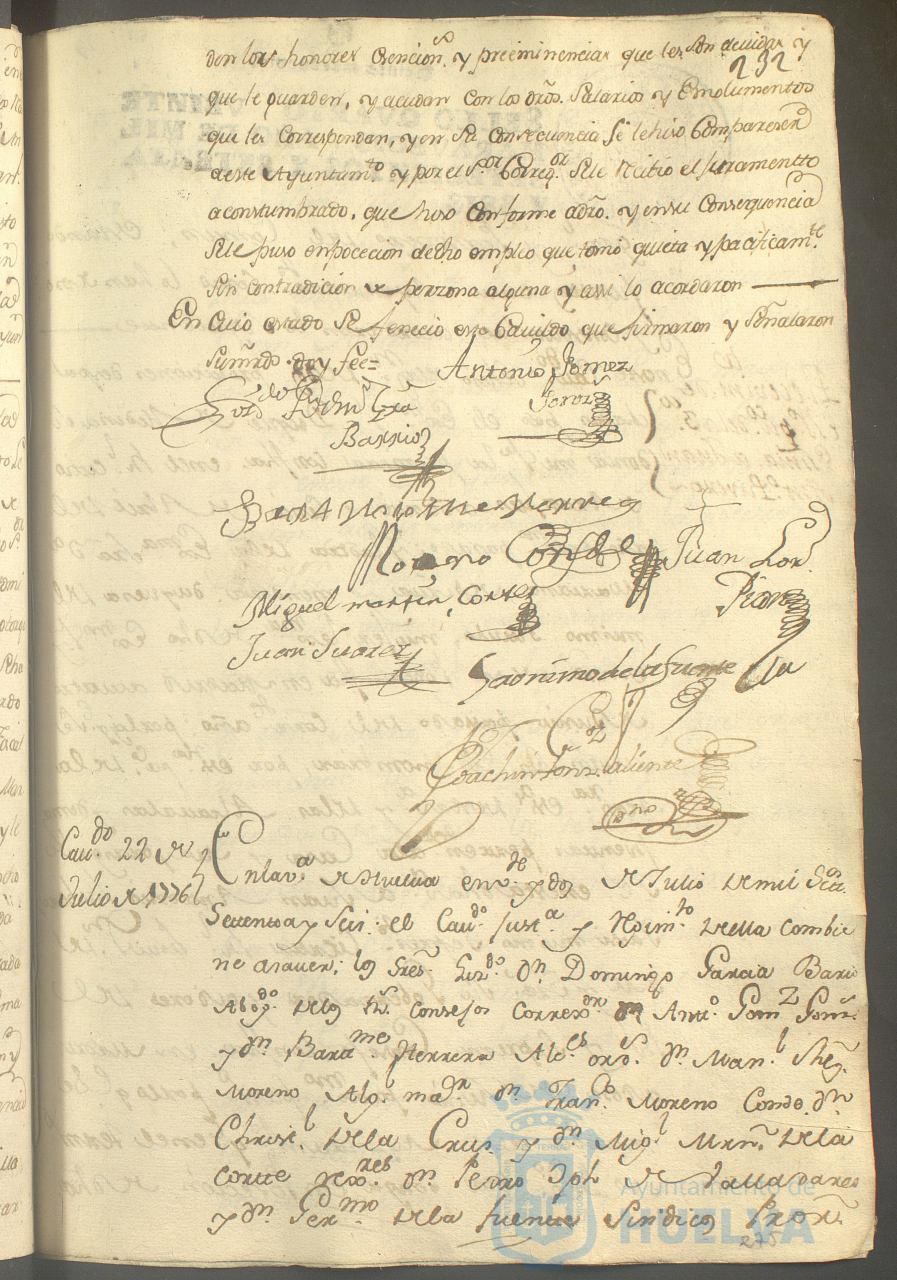 den los honores esencion.s y preeminencias que les son devidas y
232
que le guarden, y acudan con los dros. salarios y emolumentos
que les correspondan, y en su consecuencia se le hiso compareser
a este Ayuntam.to y por el s.or Correg.or se le recivio el juramentto
acostumbrado, que hiso conforme a dro. y en su consequencia
se le puso en pocecion de dho empleo que tomo quieta y pacificam.te
sin contradicion de perzona alguna y assi lo acordaron
En cuio estado se fenecio este Cavildo que firmaron y señalaron
sus mrds. doy fee=
Antonio Gomez
Barrio
Herrera
Moreno Conde
Juan
Miguel martin Corte
Juan Suarez
Geronimo de la fuente
Joachin Valiente
Cav.do 22 de
Julio de 1776
En la v.a de Huelva en v.te y dos de Julio de mil Setc.os
Settenta y Seis: el Cav.do Just.a y Rejim.to de ella combie
ne a saver; los Sres. Lizd.do D.n Domingo Garcia Bario
Abog.do de los Rs. Consejos Correx.or D.n Ant.o Gomz
y D.n Barm.me Herrera Alc.es ord.s D.n Man.l
Moreno Alg.l ma.r D.n Fran.co Moreno Conde D.n
Christ.l de la Crus y D.n Mig.l Mrn. de la
Corte rex.res D.n Pedro Jph de Valladares
y D.n Ger.mo de la fuente Sindico Pror.
275
Ayuntamiento de
HUELVA